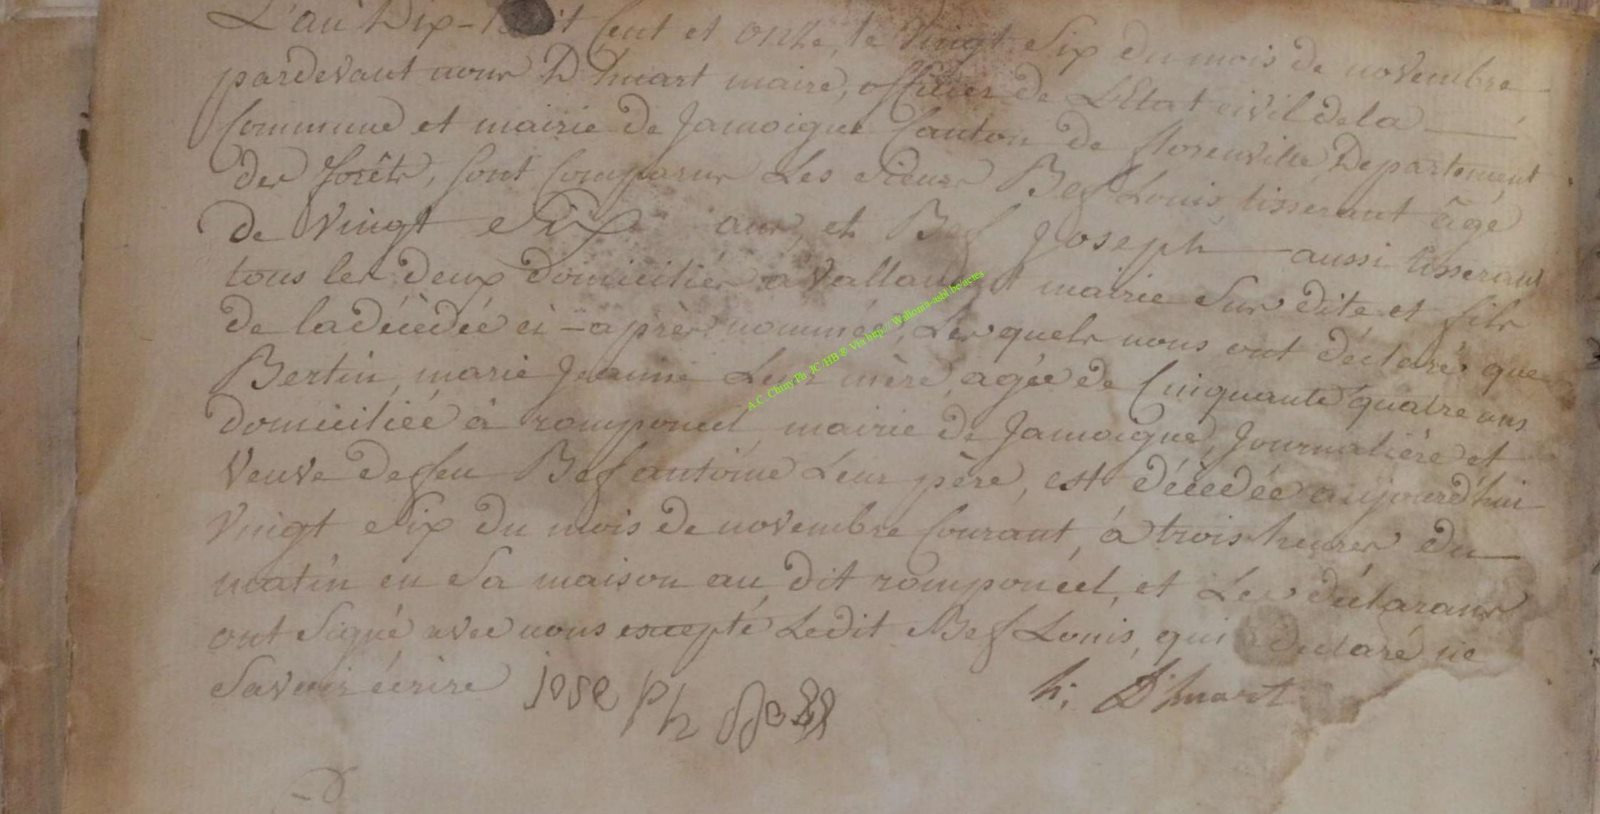 L'an Dix-huit Cent et onze, le Vingt Six du mois de novembre
pardevant nous D'huart maire, officier de L'Etat civil de la
Commune et mairie de Jamoigne Canton de florenville Departement
des forêts, sont Comparus Les sieurs Bef Louis, tisserant âgé
de Vingt Six ans, et Bef Joseph aussi tisserant
tous les deux domiciliés a Vallan mairie Sus dite et fils
de la décédée ci-après nommée, Lesquels nous ont déclaré que
Bertin, marie Jeanne Leur mère, agée de Cinquante quatre ans
domiciliée à romponcel, mairie de Jamoigne, Journalière et
Veuve de feu Bef antoine Leur père, est décédée aujourd'hui
Vingt Six du mois de novembre Courant, à trois heures du
matin en Sa maison au dit romponcel, et Les déclarans
ont Signé avec nous excepté Ledit Bef Louis, qui déclaré ne
Savoir écrire Joseph h: D'huart
A.C. Chiny Ph. JC HB & Via http:// Wallonia-asbl.be/actes